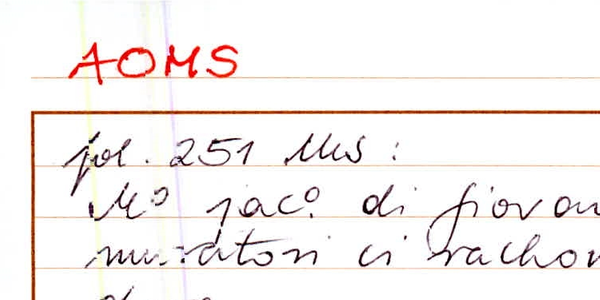 AOMS
fol. 251 Ms:
Mº jacº. di giovan
muratori ci rachon